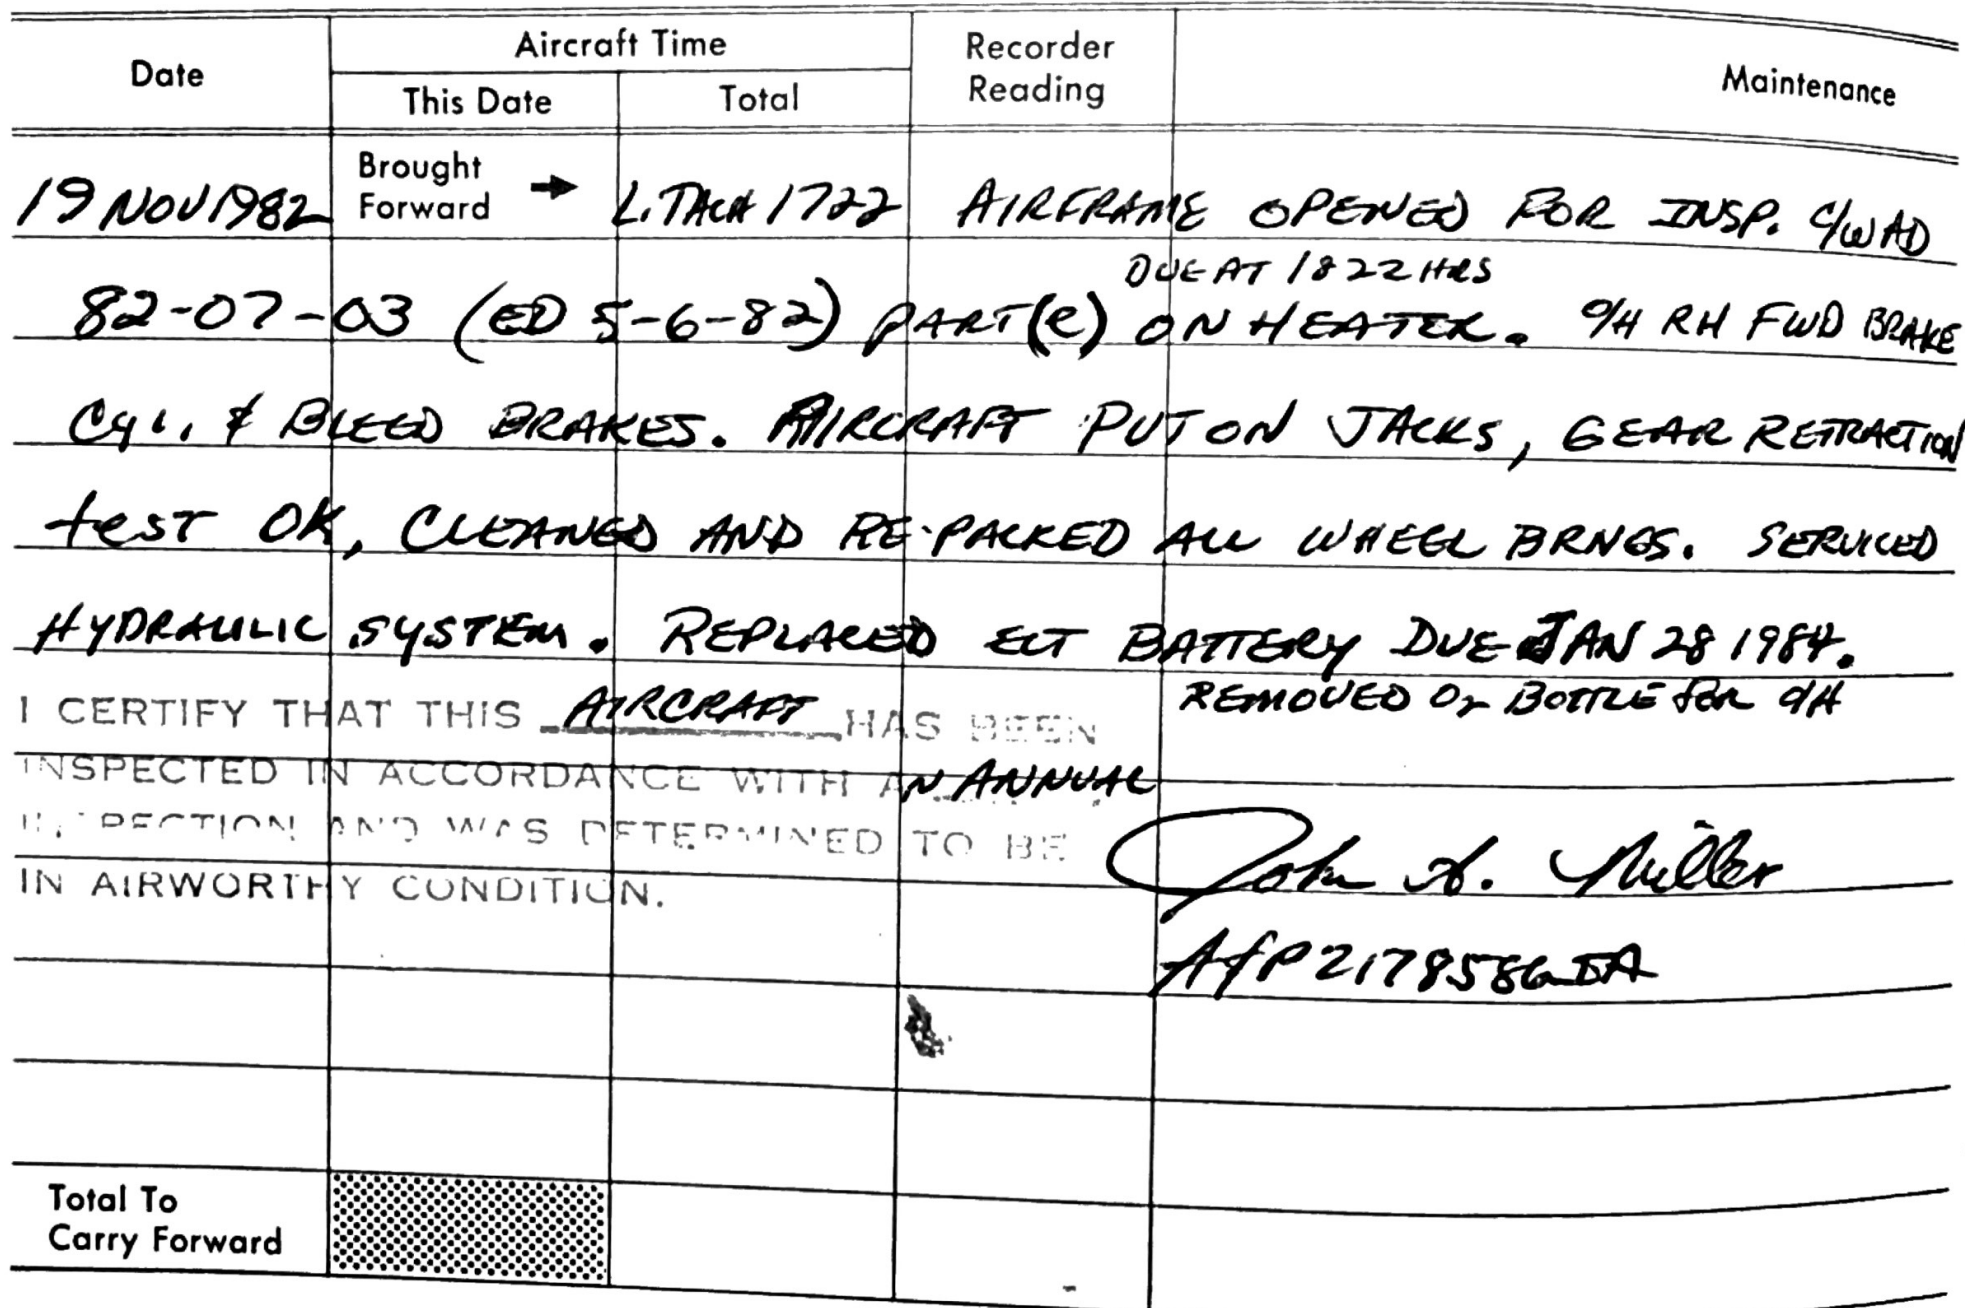 Date
Aircraft Time
This Date
Total
Recorder
Reading
Maintenance
Brought
Forward →
19 NOV 1982 L. TACH 1722 AIRFRAME OPENED FOR INSP. C/W AD
DUE AT 1822 HRS
82-07-03 (ED 5-6-82) PART(e) ON HEATER. O/H RH FWD BRAKE
Cyl. & BLEED BRAKES. AIRCRAFT PUT ON JACKS, GEAR RETRACTION
test OK, CLEANED AND RE-PACKED ALL WHEEL BRNGS. SERVICED
HYDRAULIC SYSTEM. REPLACED ELT BATTERY DUE JAN 28 1984.
REMOVED O2 BOTTLE FOR O/H
I CERTIFY THAT THIS AIRCRAFT HAS BEEN
INSPECTED IN ACCORDANCE WITH AN ANNUAL
INSPECTION AND WAS DETERMINED TO BE
IN AIRWORTHY CONDITION.
John A. Miller
A&P 2178586 IA
Total To
Carry Forward